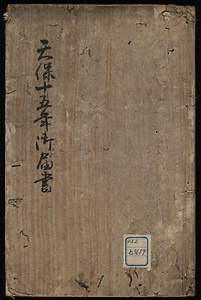 天保十五年御届書